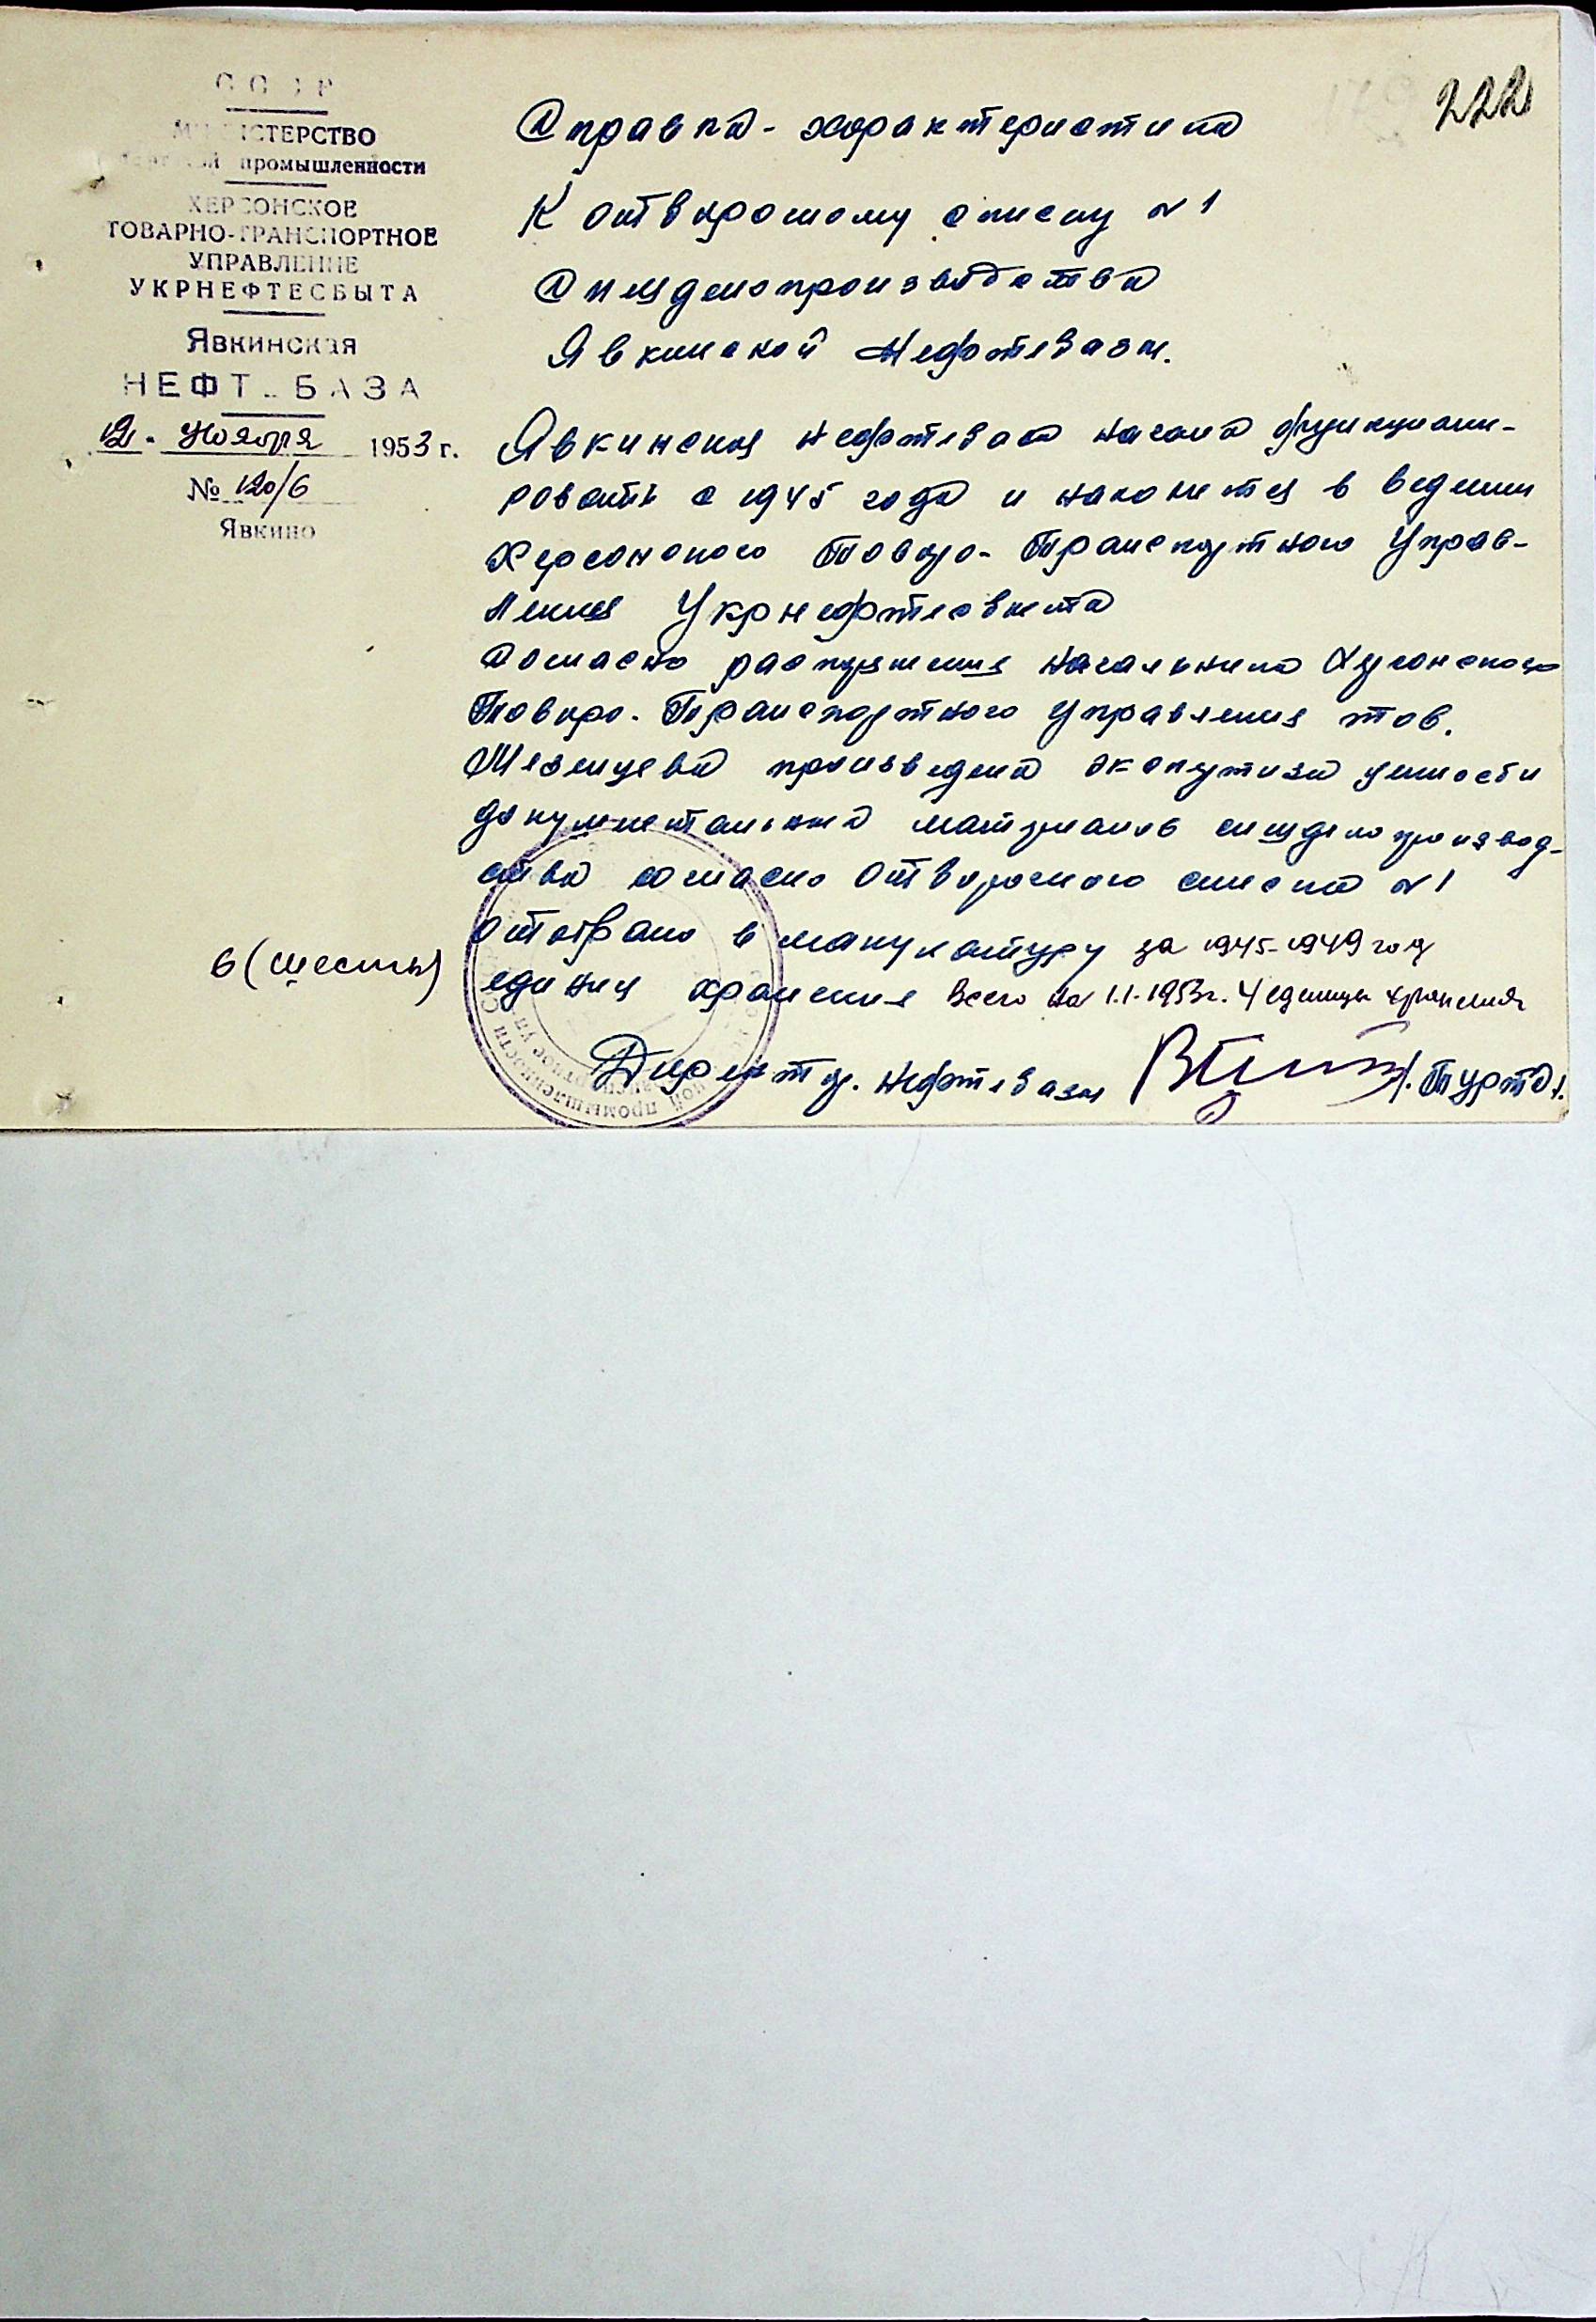 222
СССР
МИНИСТЕРСТВО
промышленности
ХЕРСОНСКОЕ
ТОВАРНО-ТРАНСПОРТНОЕ
УПРАВЛЕНИЕ
УКРНЕФТЕСБЫТА
Явкинская
НЕФТЕБАЗА
12. Ноября 1953 г.
№ 120/6
Явкино
Справка-характеристика
К отборочному списку №1
Спецделопроизводства
Явкинской Нефтебазы.
Явкинская нефтебаза начала функциони-
ровать с 1945 года и находится в ведении
Херсонского Товаро-Транспортного Управ-
ления Укрнефтесбыта
Согласно распоряжения начальника Херсонского
Товаро-Транспортного управления тов.
произведена экспертиза ценности
документальных материалов спецделопроизвод-
ства согласно отборочного списка №1
отобрано в макулатуру за 1945-1949 год
6 (шесть) единиц хранения Всего на 1.1-1953г. 4 единицы хранения
Директор. нефтебазы